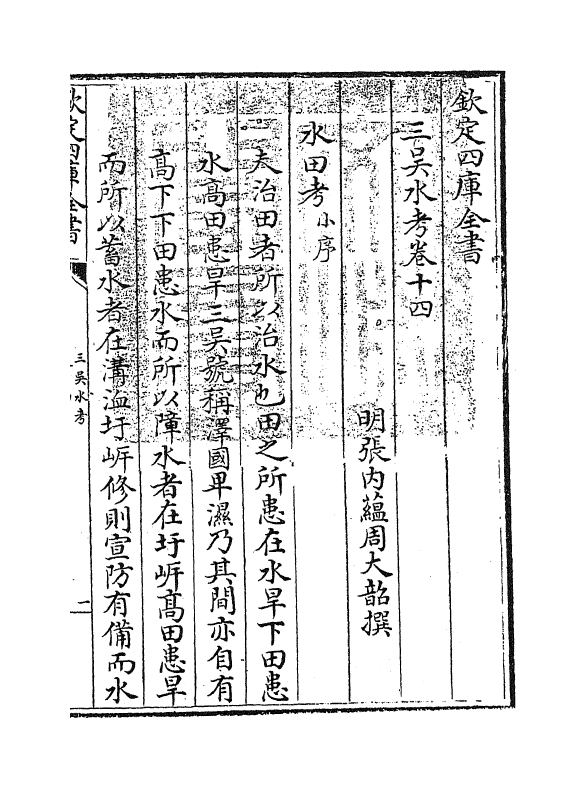 欽定四庫全書
三吳水考卷十四
明張内藴周大韶撰
水田考小序
夫治田者所以治水也田之所患在水旱下田患
水高田患旱三吳號稱澤國卑濕乃其間亦自有
高下下田患水而所以障水者在圩岸高田患旱
而所以蓄水者在溝洫圩岸修則宣防有備而水
欽定四庫全書
三吳水考
一